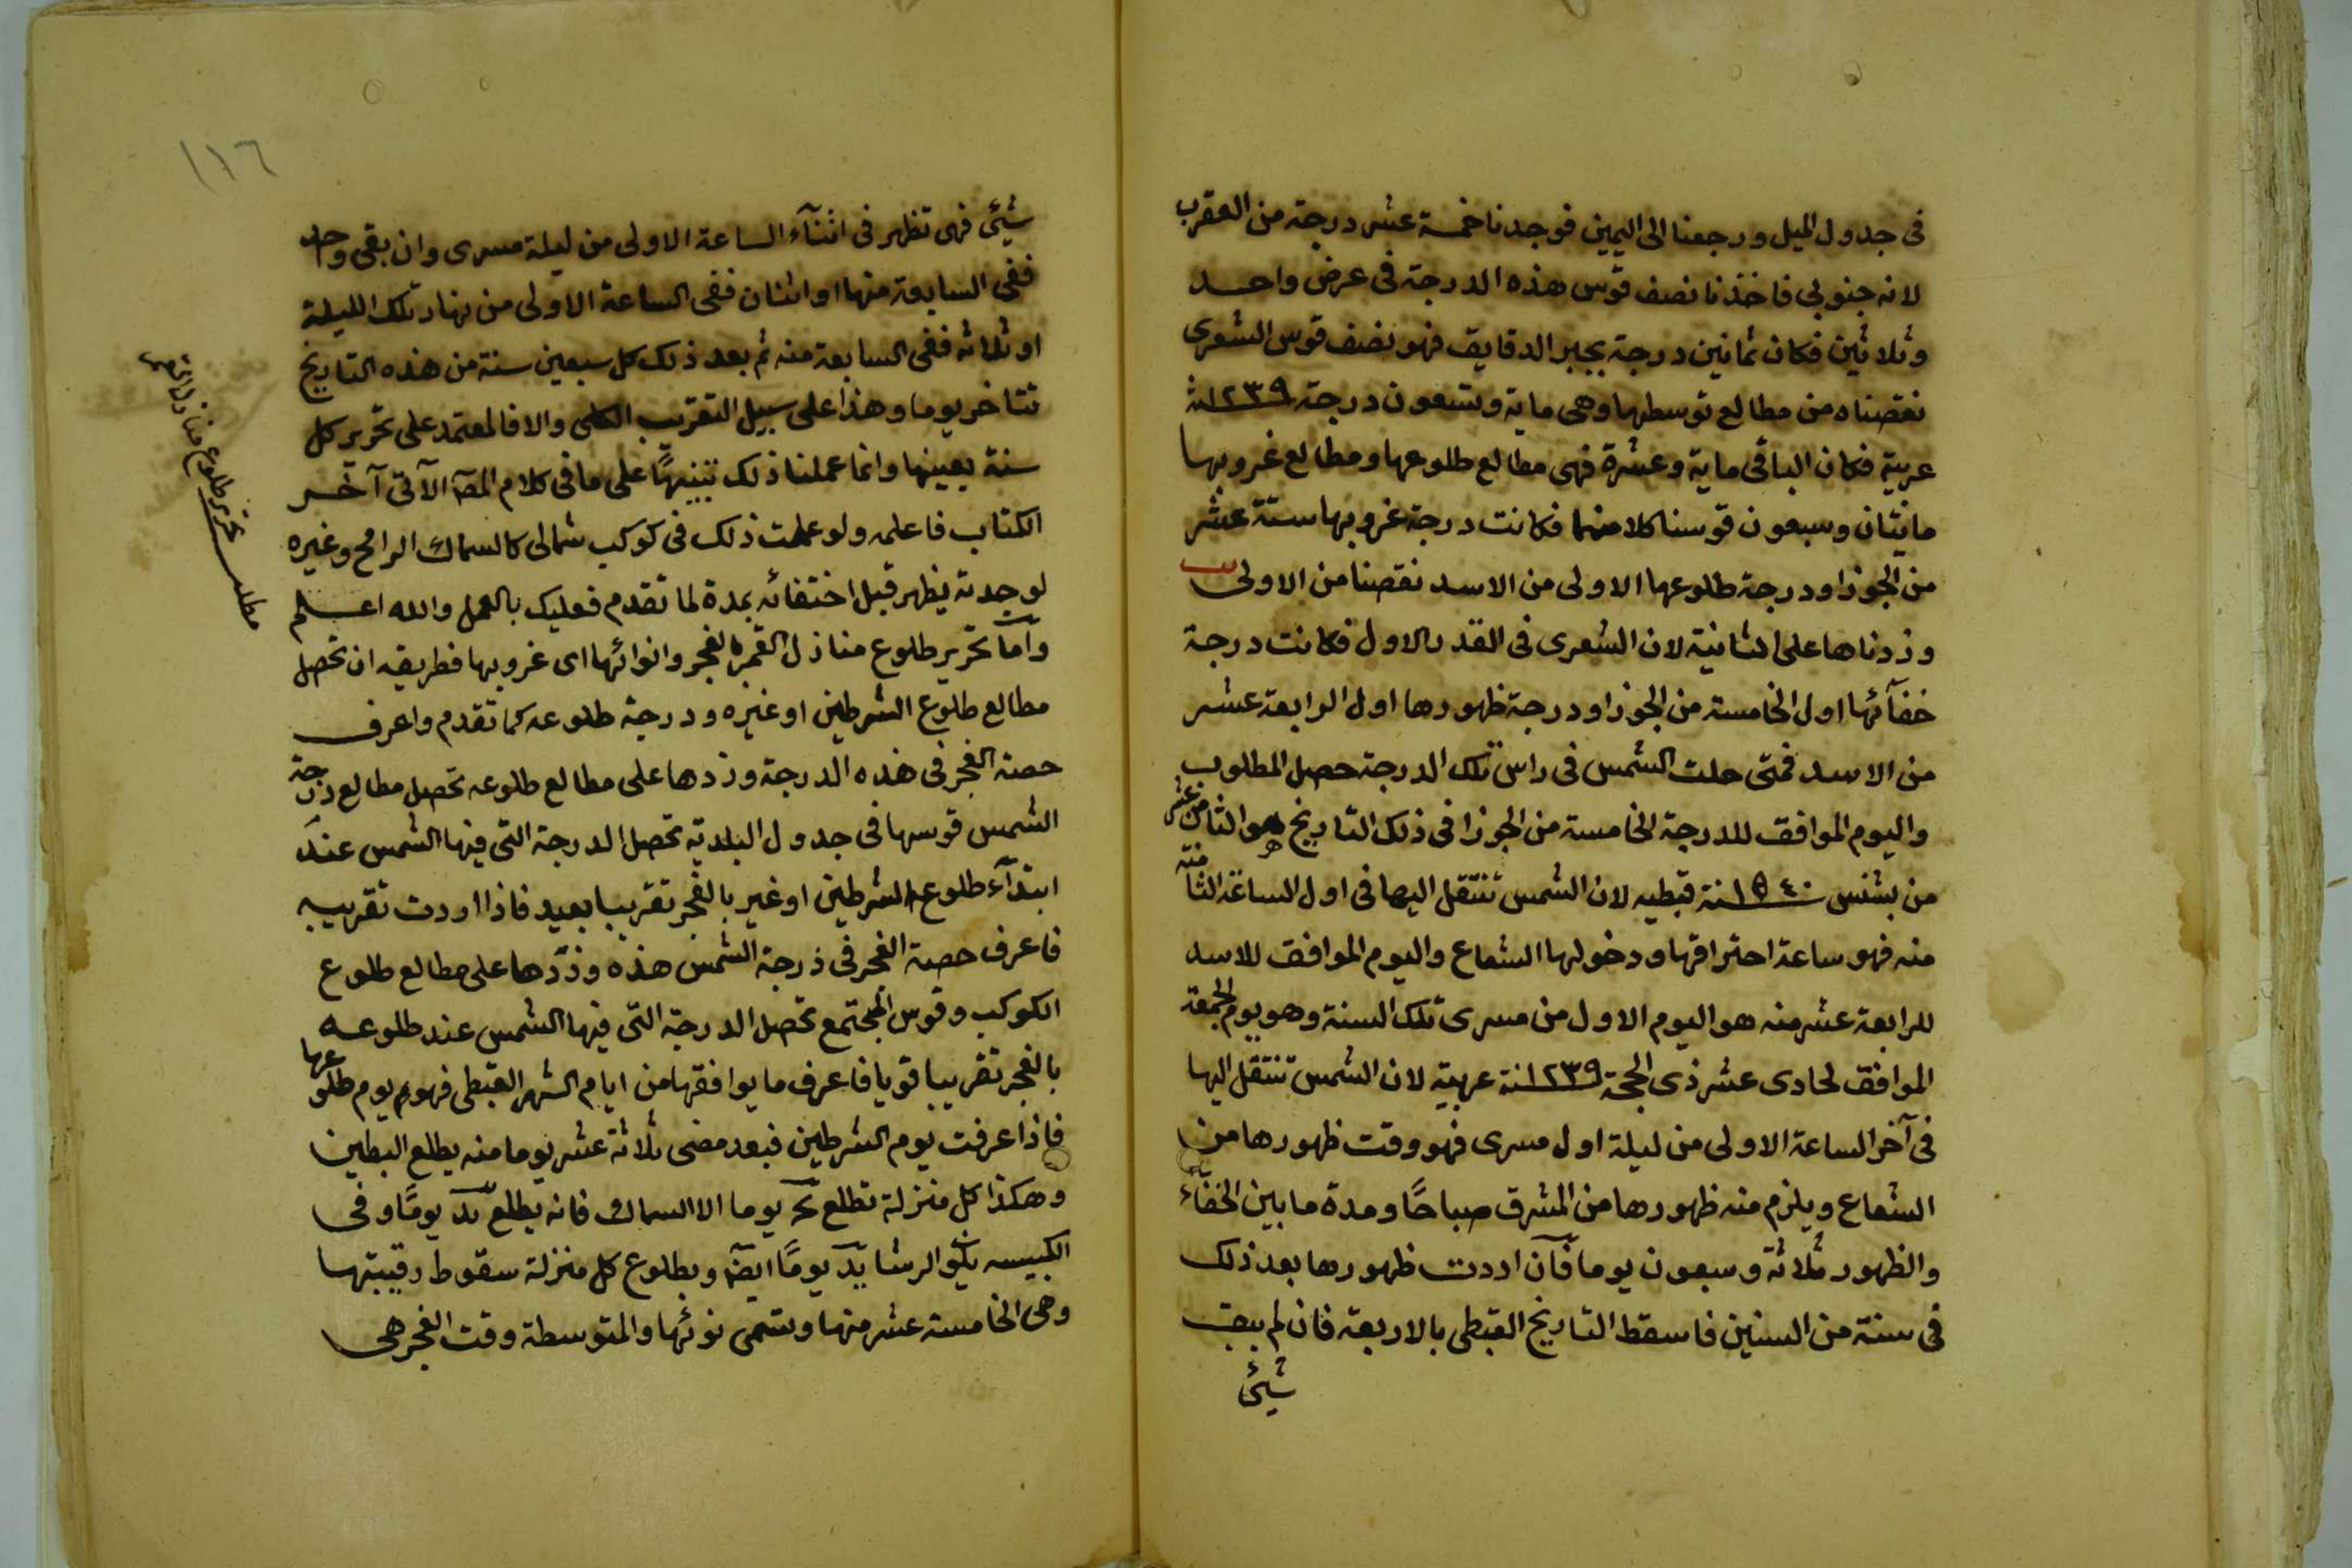 فى جدول الميل ورجعنا الى اليمين فوجدنا خمسة عشر درجة من العقرب
لانه جنوبى فاخذنا نصف قوس هذه الدرجة فى عرض واحد
وثلاثين فكان ثمانين درجة بجبر الدقايق فهو نصف قوس الشعرى
نقصناه من مطالع توسطها وهى ماية وتسعون درجة ١٢٣٩ سنة
عربية فكان الباقى ماية وعشرة فهى مطالع طلوعها ومطالع غروبها
مائتان وسبعون قوسنا كلا منهما فكانت درجة غروبها ستة عشر
من الجوزا ودرجة طلوعها الاولى من الاسد نقصنا من الاولى
وزدناها على الثانية لان الشعرى فى القدر الاول فكانت درجة
خفآئها اول الخامسة من الجوزا ودرجة ظهورها اول الرابعة عشر
من الاسد فمتى حلت الشمس فى راس تلك الدرجة حصل المطلوب
واليوم الموافق للدرجة الخامسة من الجوزا فى ذلك التاريخ هو الثامن عشر
من بشنس ١٥٤٠ سنة قبطيه لان الشمس تنتقل اليها فى اول الساعة الثامنة
منه فهو ساعة احتراقها ودخولها الشعاع واليوم الموافق للاسد
للرابعة عشر منه هو اليوم الاول من مسرى تلك السنة وهو يوم الجمعة
الموافق لحادى عشر ذى الحجة ١٢٣٩ سنة عربية لان الشمس تنتقل اليها
فى آخر الساعة الاولى من ليلة اول مسرى فهو وقت ظهورها من
الشعاع ويلزم منه ظهورها من المشرق صباحًا ومدة ما بين الخفآء
والظهور ثلاثة وسبعون يوما فآن اردت ظهورها بعد ذلك
فى سنة من السنين فاسقط التاريخ القبطى بالاربعة فان لم يبق
شيئ
١١٦
شيئ فهى تظهر فى اثنآء الساعة الاولى من ليلة مسرى وان بقى واحد
ففى السابعة منها او اثنان ففى الساعة الاولى من نهار تلك الليلة
او ثلاثه ففى السابعة منه ثم بعد ذلك كل سبعين سنة من هذه التاريخ
تتاخر يوما وهذا على سبيل التقريب الكلى والا فالمعتمد على تحرير كل
سنة بعينها وانما عملنا ذلك تنبيهًا على ما فى كلام المصَ الآتى آخر
الكتاب فاعلمه ولو عملت ذلك فى كوكب شمالى كالسماك الرامح وغيره
لوجدته يظهر قبل اختفائه بمدة لما تقدم فعليك بالعمل والله اعلم
وآما تحرير طلوع منازل القمر بالفجر وانوائها اى غروبها فطريقه ان تحصل
مطالع طلوع الشرطين او غيره ودرجة طلوعه كما تقدم واعرف
حصة الفجر فى هذه الدرجة وزدها على مطالع طلوعه تحصل مطالع درجة
الشمس قوسها فى جدول البلدية تحصل الدرجة التى فيها الشمس عند
ابتدآء طلوع الشرطين او غير بالفجر تقريبا بعيد فاذا اردت تقريبه
فاعرف حصة الفجر فى درجة الشمس هذه وزدها على مطالع طلوع
الكوكب وقوس المجتمع تحصل الدرجة التى فيها الشمس عند طلوعه
بالفجر تقريبا قويا فاعرف ما يوافقها من ايام الشهر القبطى فهو يوم طلوعها
فاذا عرفت يوم الشرطين فبعد مضى ثلاثة عشر يوما منه يطلع البطين
وهكذا كل منزلة تطلع يحَ يوما الا السماك فانه يطلع يدَ يومًا وفى
الكبيسه يكون الرشا يدَ يومًا ايضَا وبطلوع كل منزلة سقوط رقيبتها
وهى الخامسة عشر منها وتسمى نوئها والمتوسطة وقت الفجر هى
مطلب تحرير طلوع منازل القمر